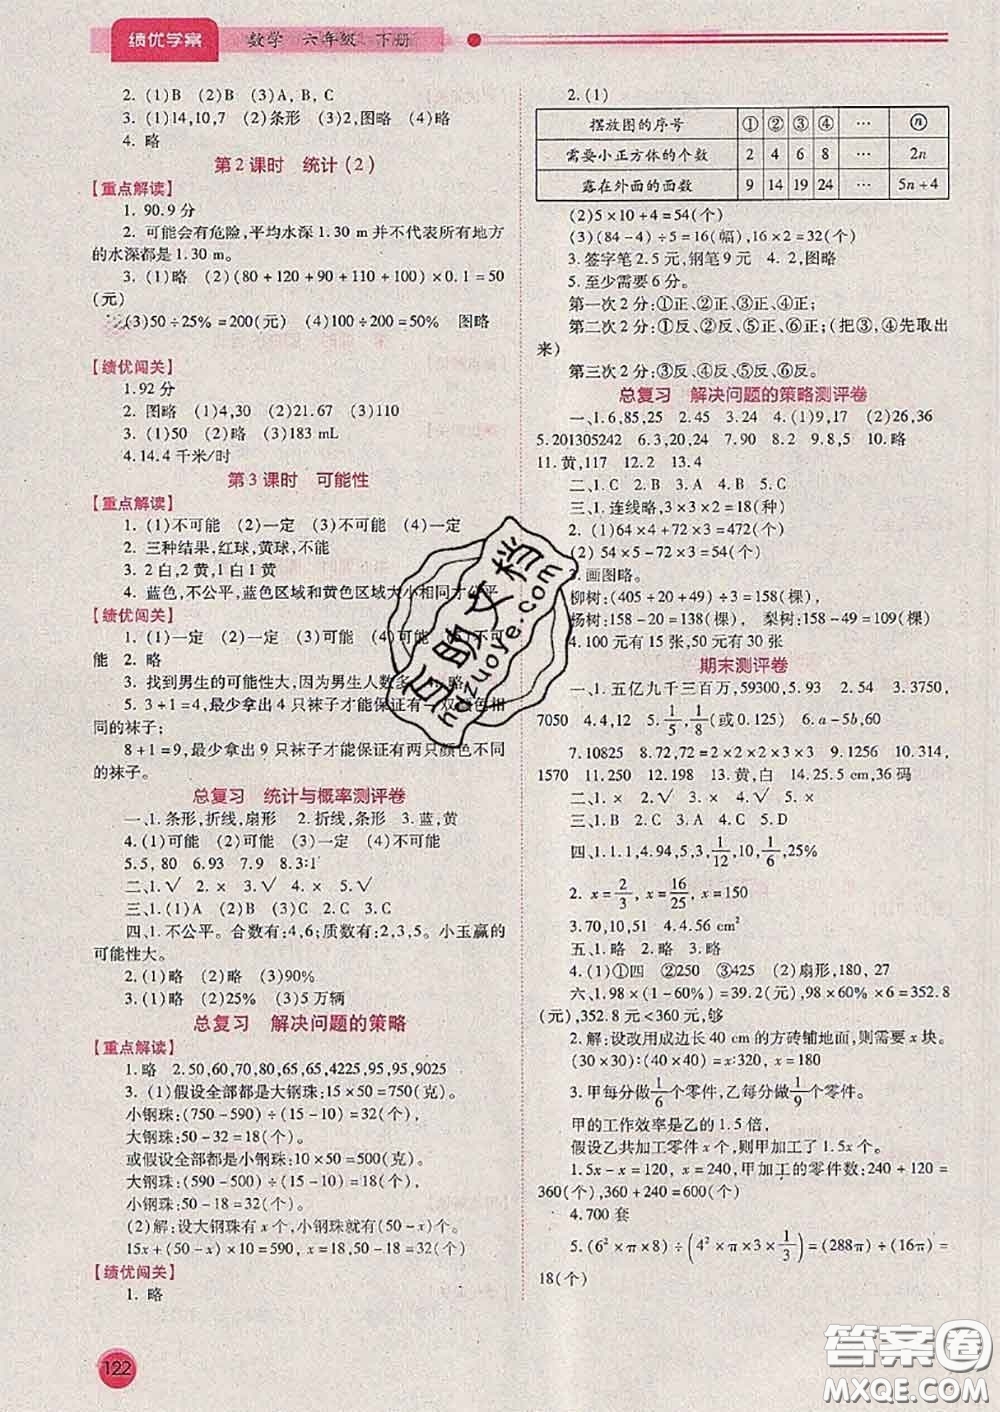 绩优学案 数学 六年级 下册
2. (1)B (2)B (3)A, B, C
3. (1)14,10,7 (2)条形 (3)2,图略 (4)略
4. 略
第2课时 统计(2)
【重点解读】
1. 90.9分
2. 可能会有危险,平均水深1.30 m并不代表所有地方
的水深都是1.30 m。
3. (1)略 (2)(80+120+90+110+100)×0.1=50
(元)
(3)50÷25%=200(元) (4)100÷200=50% 图略
【绩优闯关】
1.92分
2. 图略 (1)4,30 (2)21.67 (3)110
3. (1)50 (2)略 (3)183 mL
4.14.4千米/时
第3课时 可能性
【重点解读】
1. (1)不可能 (2)一定 (3)不可能 (4)一定
2. 三种结果,红球,黄球,不能
3. 2白,2黄,1白1黄
4. 蓝色,不公平,蓝色区域和黄色区域大小相同才公平
【绩优闯关】
1. (1)一定 (2)一定 (3)可能 (4)可能 不可
能 2. 略
3. 找到男生的可能性大,因为男生人数多 略
5. 3+1=4,最少拿出4只袜子才能保证有一双颜色相
同的袜子;
8+1=9,最少拿出9只袜子才能保证有两只颜色不同
的袜子。
总复习 统计与概率测评卷
一、1. 条形,折线,扇形 2. 折线,条形 3. 蓝,黄
4. (1)可能 (2)可能 (3)一定 (4)不可能
5.5, 80 6.93 7.9 8.3∶1
二、1.√ 2.× 3.× 4.√ 5.√
三、1. (1)A (2)B (3)C 2.C 3.C
四、1. 不公平。合数有:4,6;质数有:2,3,5。小玉赢的
可能性大。
2. (1)略 (2)略 (3)90%
3. (1)略 (2)25% (3)5万辆
总复习 解决问题的策略
【重点解读】
1. 略 2.50,60,70,80,65,65,4225,95,95,9025
3. (1)假设全部都是大钢珠:15×50=750(克)。
小钢珠:(750-590)÷(15-10)=32(个)。
大钢珠:50-32=18(个)。
或假设全部都是小钢珠:10×50=500(克)。
大钢珠:(590-500)÷(15-10)=18(个)。
小钢珠:50-18=32(个)。
(2)解:设大钢珠有x个,小钢珠有(50-x)个。
15x+(50-x)×10=590, x=18,50-18=32(个)。
【绩优闯关】
1. 略
122
2. (1)
摆放图的序号 ① ② ③ ④ … ⓝ
需要小正方体的个数 2 4 6 8 … 2n
露在外面的面数 9 14 19 24 … 5n+4
(2)5×10+4=54(个)
(3)(84-4)÷5=16(幅),16×2=32(个)
3. 签字笔2.5元,钢笔9元 4. 2,图略
5. 至少需要6分。
第一次2分:①正、②正、③正、④正;
第二次2分:①反、②反、⑤正、⑥正;(把③,④先取出
来)
第三次2分:③反、④反、⑤反、⑥反。
总复习 解决问题的策略测评卷
一、1. 6,85,25 2.45 3.24 4. (1)9,17 (2)26,36
5.201305242 6.3,20,24 7.90 8.2 9.8,5 10. 略
11. 黄,117 12.2 13.4
二、1.C 2.B 3.C 4.B 5.C
三、1. 连线略,3×3×2=18(种)
2. (1)64×4+72×3=472(个)
(2) 54×5-72×3=54(个)
3. 画图略。
柳树:(405+20+49)÷3=158(棵),
杨树:158-20=138(棵), 梨树:158-49=109(棵)
4. 100元有15张,50元有30张
期末测评卷
一、1. 五亿九千三百万,59300,5.93 2.54 3.3750,
7050 4.4,12 5. 1/5, 1/8(或0.125) 6. a-5b,60
7.10825 8.72,72=2×2×2×3×3 9.1256 10.314,
1570 11.250 12.198 13. 黄,白 14.25.5 cm,36码
二、1.× 2.√ 3.× 4.× 5.√
三、1.B 2.C 3.A 4.C 5.D
四、1.1.1,4.94,5,3,1/12,10,1/6,25%
2. x=2/3, x=16/25, x=150
3.70,10,51 4.4.56
五、1. 略 2. 略 3. 略
4. (1)①四 ②250 ③425 (2)扇形,180, 27
六、1.98×(1-60%)=39.2(元),98×60%×6=352.8
(元),352.8元<360元,够
2. 解:设改用成边长40 cm的方砖铺地面,则需要x块。
(30×30)∶(40×40)=x∶320, x=180
3. 甲每分做1/6个零件,乙每分做1/9个零件。
甲的工作效率是乙的1.5倍,
假设乙共加工零件x个,则甲加工了1.5x个。
1.5x-x=120, x=240,甲加工的零件数:240+120=
360(个),360+240=600(个)
4.700套
5. (6²×π×8)÷(4²×π×3×1/3)=(288π)÷(16π)=
18(个)
百助文档
hdzuoye.com
答案圈
MXQE.COM